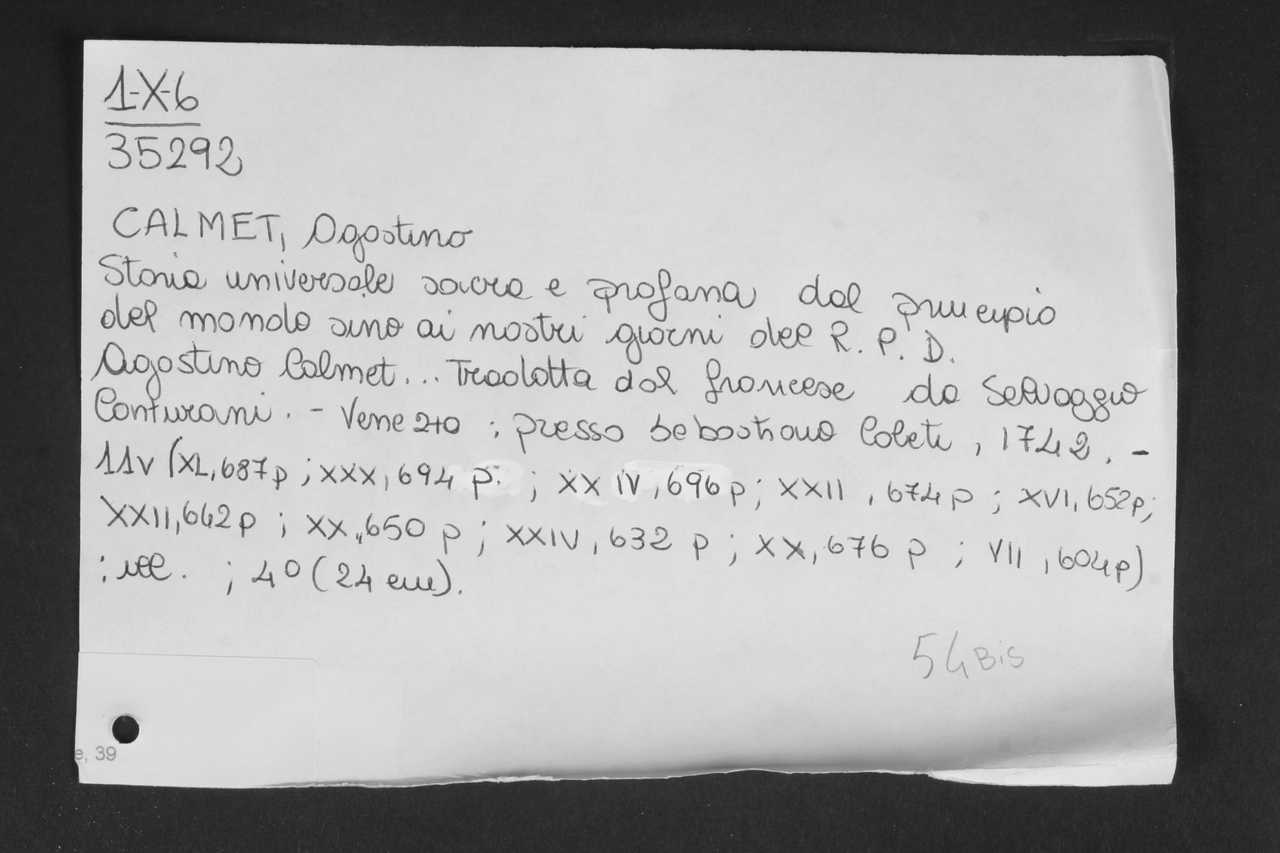 1-X-6
35292
CALMET, Agostino
Storia universale sacra e profana dal principio
del mondo sino ai nostri giorni del R. P. D.
Agostino Calmet... Tradotta dal francese da Selvaggio
Canturani. - Venezia : presso Sebastiano Coleti, 1742. -
11v (XL, 687p ; XXX, 694 p. ; XXIV, 696p ; XXII, 674p ; XVI, 652p;
XXII, 662p ; XX, 650 p ; XXIV, 632 p ; XX, 676 p ; VII, 604p)
: ill. ; 4° (24 cm).
54 Bis
e, 39